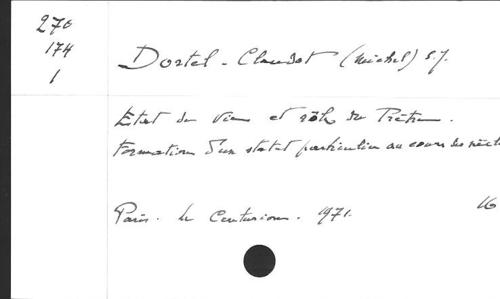 270
174
1
Dortel-Claudot (Michel) s.j.
Etat de vie et rôle du Prêtre.
Formation d'un statut particulier au cours des siècl
Paris. Le Centurion. 1971. 16